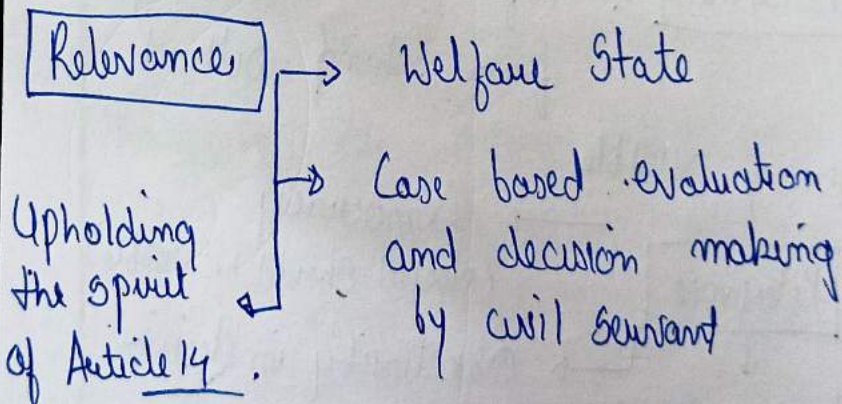 Relevance
Welfare State
Case based evaluation
and decision making
by civil servant
Upholding
the spirit
of Article 14.